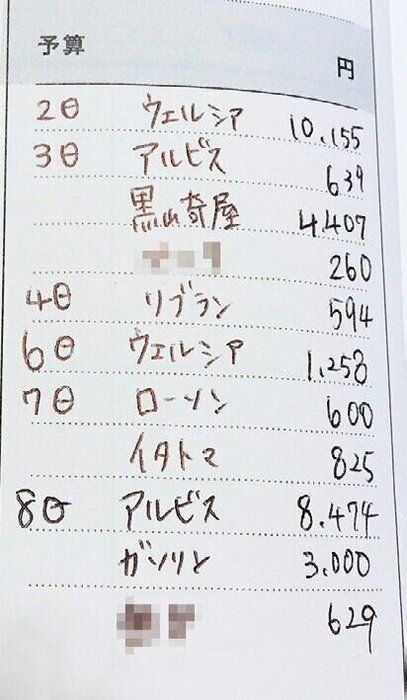 予算
円
2日 ウェルシア 10.155
3日 アルビス 639
黒山奇屋 4.407
260
4日 リブラン 594
6日 ウェルシア 1.258
7日 ローソン 600
イタトマ 825
8日 アルビス 8.474
ガソリン 3.000
629